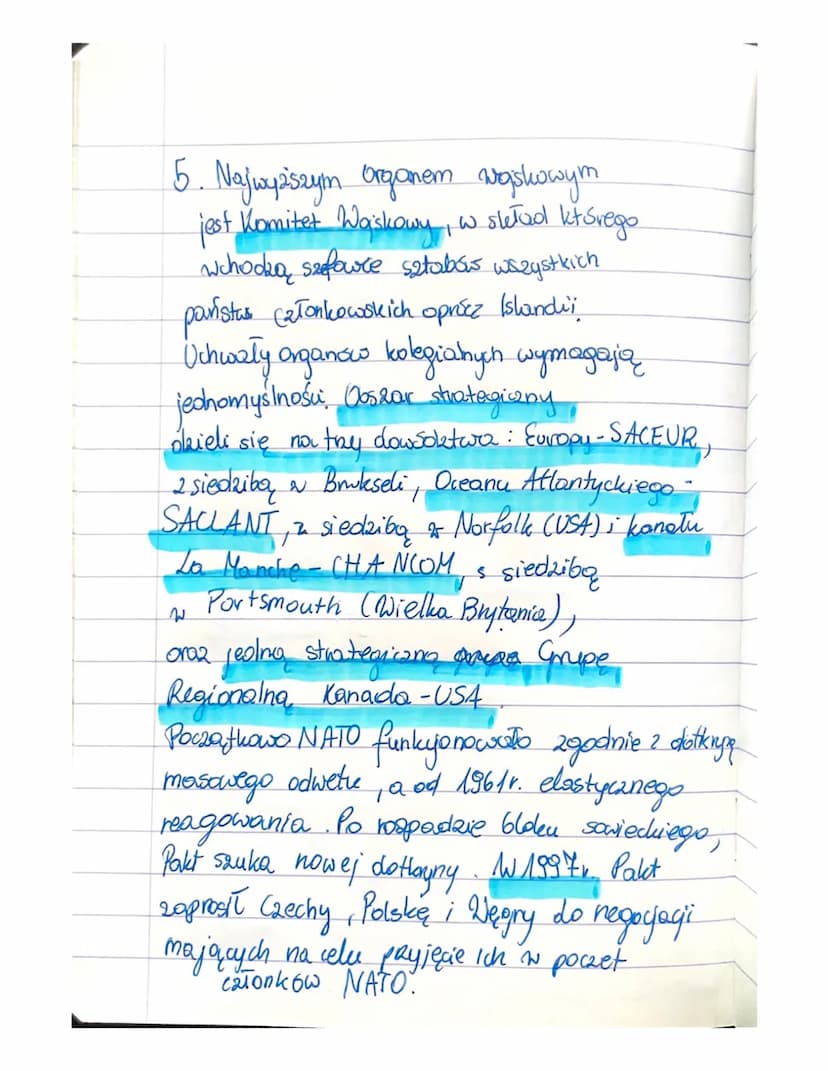 5. Najwyższym organem wojskowym
jest Komitet Wojskowy, w skład którego
wchodzą szefowie sztabów wszystkich
państw członkowskich oprócz Islandii.
Uchwały organów kolegialnych wymagają
jednomyślności. Obszar strategiczny
dzieli się na trzy dowództwa: Europy - SACEUR,
z siedzibą w Brukseli, Oceanu Atlantyckiego -
SACLANT, z siedzibą w Norfolk (USA) i kanału
La Manche - CHANCOM, s siedzibą
w Portsmouth (Wielka Brytania),
oraz jedną strategiczną Grupę
Regionalną Kanada - USA.
Początkowo NATO funkcjonowało zgodnie z doktryną
masowego odwetu, a od 1961r. elastycznego
reagowania. Po rozpadzie bloku sowieckiego,
Pakt szuka nowej doktryny. W 1997r. Pakt
zaprosił Czechy, Polskę i Węgry do negocjacji
mających na celu przyjęcie ich w poczet
członków NATO.